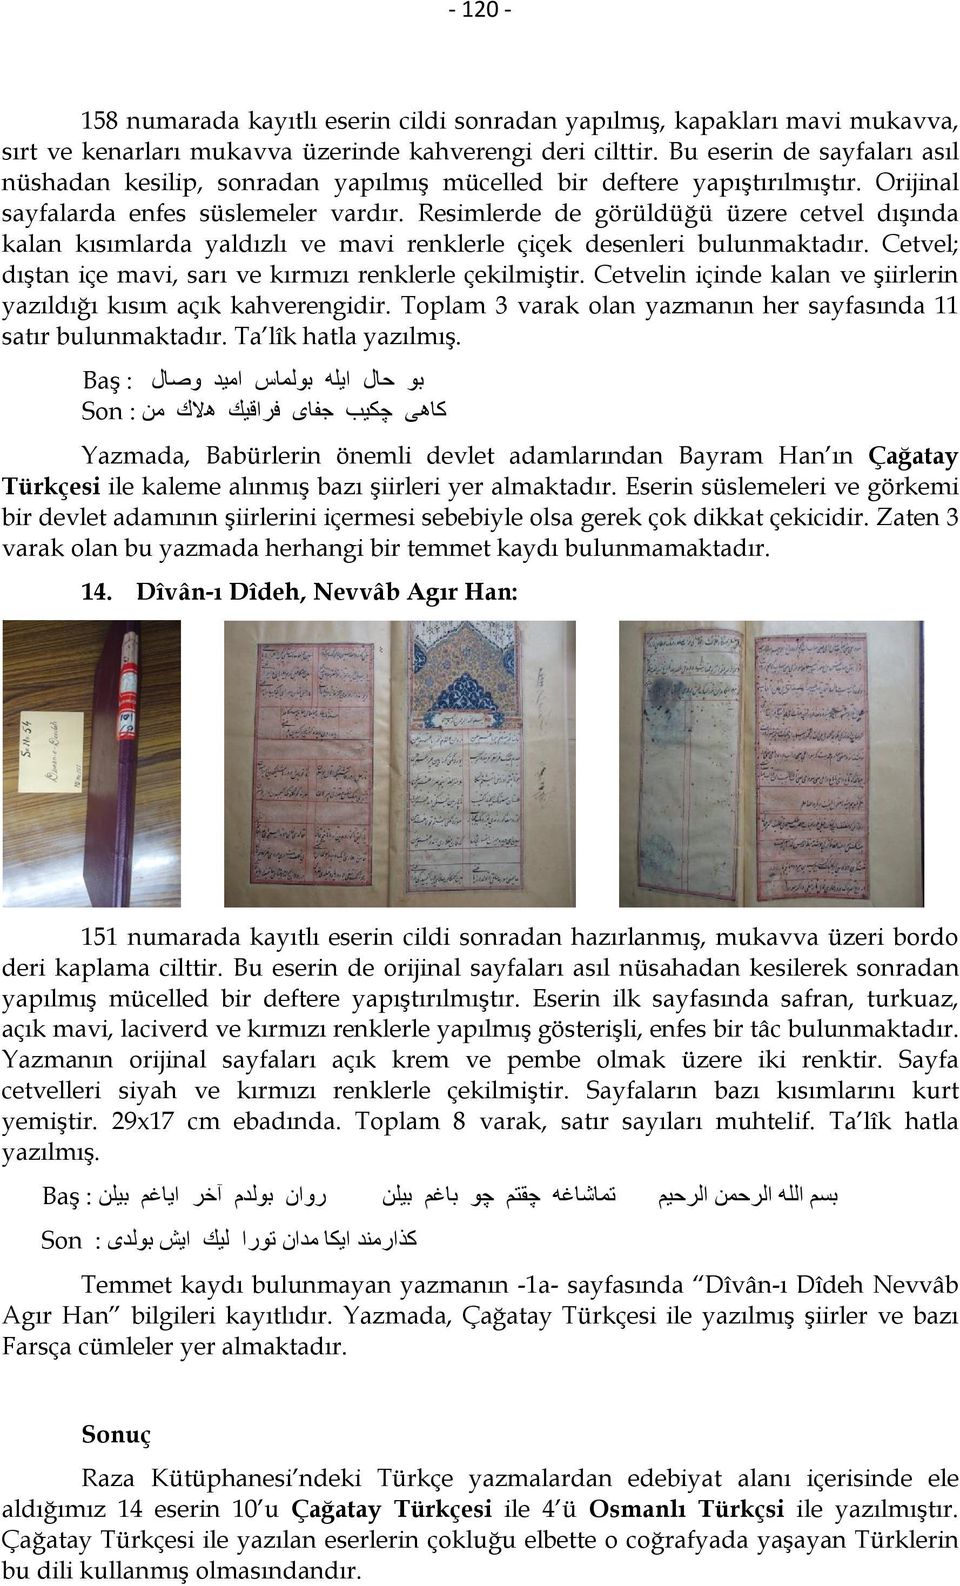 - 120 -
158 numarada kayıtlı eserin cildi sonradan yapılmış, kapakları mavi mukavva,
sırt ve kenarları mukavva üzerinde kahverengi deri cilttir. Bu eserin de sayfaları asıl
nüshadan kesilip, sonradan yapılmış mücelled bir deftere yapıştırılmıştır. Orijinal
sayfalarda enfes süslemeler vardır. Resimlerde de görüldüğü üzere cetvel dışında
kalan kısımlarda yaldızlı ve mavi renklerle çiçek desenleri bulunmaktadır. Cetvel;
dıştan içe mavi, sarı ve kırmızı renklerle çekilmiştir. Cetvelin içinde kalan ve şiirlerin
yazıldığı kısım açık kahverengidir. Toplam 3 varak olan yazmanın her sayfasında 11
satır bulunmaktadır. Ta’lîk hatla yazılmış.
Baş : بو حال ايله بولماس اميد وصال
Son : كاهى چكيب جفاى فراقيك هلاك من
Yazmada, Babürlerin önemli devlet adamlarından Bayram Han’ın Çağatay
Türkçesi ile kaleme alınmış bazı şiirleri yer almaktadır. Eserin süslemeleri ve görkemi
bir devlet adamının şiirlerini içermesi sebebiyle olsa gerek çok dikkat çekicidir. Zaten 3
varak olan bu yazmada herhangi bir temmet kaydı bulunmamaktadır.
14. Dîvân-ı Dîdeh, Nevvâb Agır Han:
151 numarada kayıtlı eserin cildi sonradan hazırlanmış, mukavva üzeri bordo
deri kaplama cilttir. Bu eserin de orijinal sayfaları asıl nüsahadan kesilerek sonradan
yapılmış mücelled bir deftere yapıştırılmıştır. Eserin ilk sayfasında safran, turkuaz,
açık mavi, laciverd ve kırmızı renklerle yapılmış gösterişli, enfes bir tâc bulunmaktadır.
Yazmanın orijinal sayfaları açık krem ve pembe olmak üzere iki renktir. Sayfa
cetvelleri siyah ve kırmızı renklerle çekilmiştir. Sayfaların bazı kısımlarını kurt
yemiştir. 29x17 cm ebadında. Toplam 8 varak, satır sayıları muhtelif. Ta’lîk hatla
yazılmış.
Baş : بسم الله الرحمن الرحيم تماشاغه چقتم چو باغم بيلن روان بولدم آخر اياغم بيلن
Son : كذارمند ايكا مدان تورا ليك ايش بولدى
Temmet kaydı bulunmayan yazmanın -1a- sayfasında “Dîvân-ı Dîdeh Nevvâb
Agır Han” bilgileri kayıtlıdır. Yazmada, Çağatay Türkçesi ile yazılmış şiirler ve bazı
Farsça cümleler yer almaktadır.
Sonuç
Raza Kütüphanesi’ndeki Türkçe yazmalardan edebiyat alanı içerisinde ele
aldığımız 14 eserin 10’u Çağatay Türkçesi ile 4’ü Osmanlı Türkçsi ile yazılmıştır.
Çağatay Türkçesi ile yazılan eserlerin çokluğu elbette o coğrafyada yaşayan Türklerin
bu dili kullanmış olmasındandır.